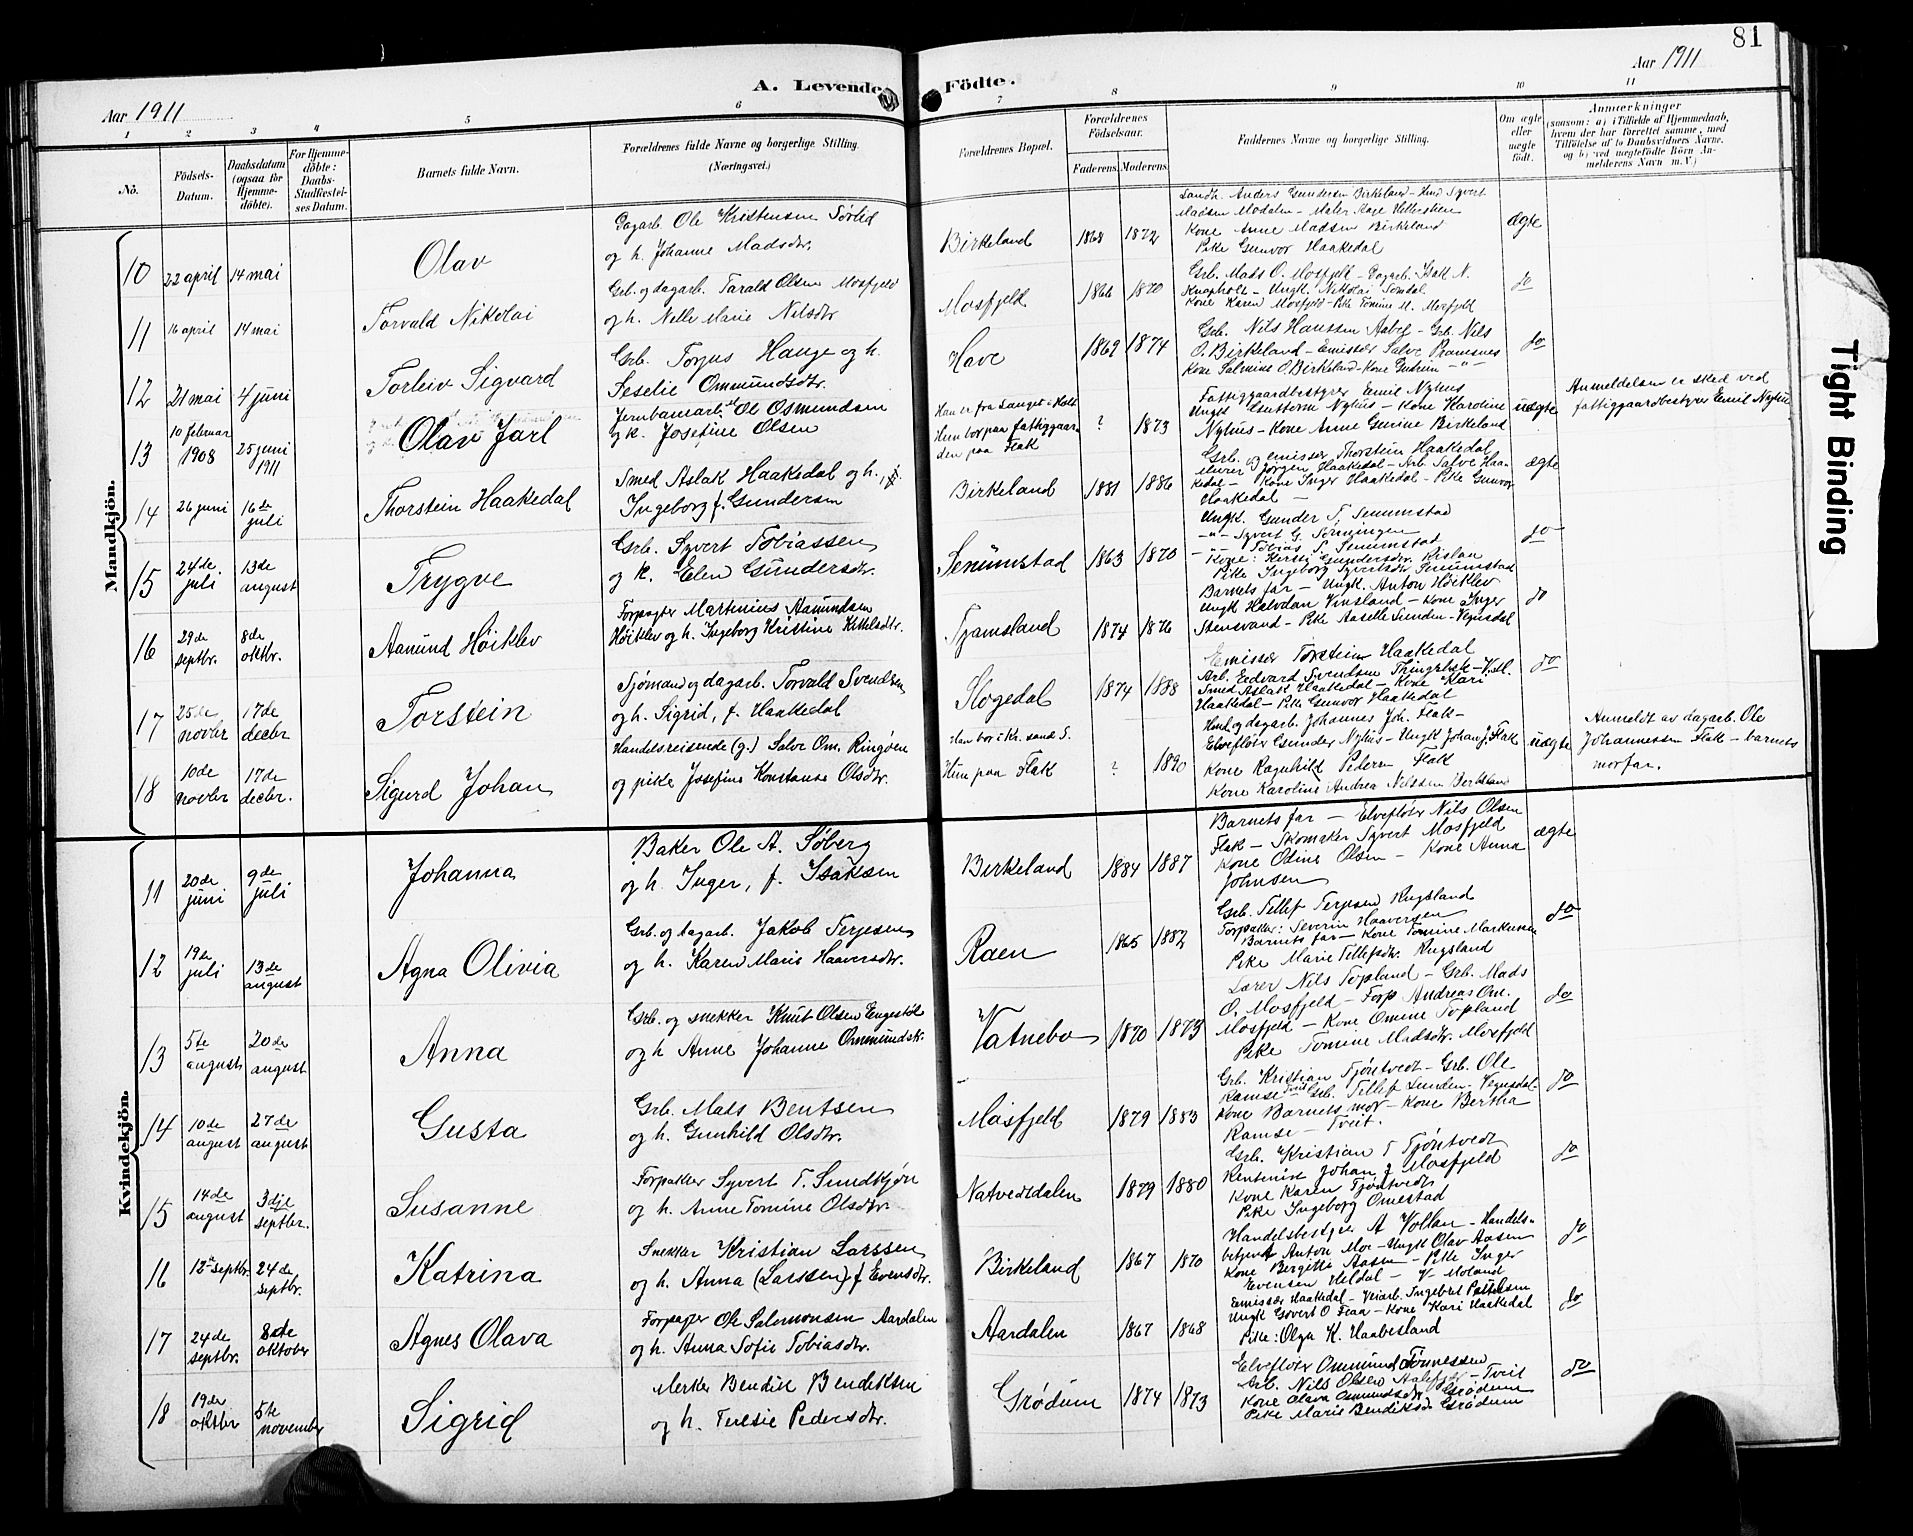 81
Aar 1911
A. Levende Födte.
Aar 1911
1 2 3 4 5 6 7 8 9 10 11
No.
Födsels-Datum.
Daabsdatum (ogsaa for Hjemmedöbte).
For Hjemmedöbte: Daabs-Stadfæstelses Datum.
Barnets fulde Navn.
Forældrenes fulde Navne og borgerlige Stilling. (Næringsvei.)
Forældrenes Bopæl.
Forældrenes Födselsaar.
Faderens. Moderens.
Faddernes Navne og borgerlige Stilling.
Om ægte eller uægte födt.
Anmærkninger
(saasom: a) i Tilfælde af Hjemmedaab, hvem der har forrettet samme, med Tilföielse af to Daabsvidners Navne, og b) ved uægtefödte Börn Anmelderens Navn m. V.)
Mandkjön.
10 22 april 14 mai Olav
Dagarb. Ole Kristensen Sørlid
og h. Johanne Madsdtr.
Birkeland 1868 1872
Landh. Anders Gundersen Birkeland - Hmd Syvert
Madsen Modalen - Maler Aage
Kone Anne Madsen Birkeland
Pike Gunvor Haakedal
ægte
11 16 april 14 mai Torvald Nikolai
Grb. og dagarb. Tarald Olsen Mosfjeld
og h. Nelle Marie Nilsdtr
Mosfjeld 1866 1870
Grb. Mads O. Mosfjeld - Dagarb. Isak N.
Knapholt - Ungk. Nikolai Tondal
Kone Karen Mosfjeld - Pike Tomine M. Mosfjeld
do
12 21 mai 4 juni Torleiv Sigvard
Grb. Torjus Hauge og h.
Seselie Ommundsdtr.
Have 1869 1874
Grb. Nils Hanssen Aabel - Grb. Nils
O. Birkeland - Emissær Salve Pramsnes
Kone Salmine O. Birkeland - Kone Gudrun - " -
do
13 10 februar 1908 25 juni 1911 Olav Jarl
Jernbanearb. Ole Osmundsen
og k. Josefine Olsen
Han er fra Lauget i Holt
Hun bor paa fattiggaarden paa Flak
? 1873
Fattiggaardbestyrer Emil Nyhus
Ungk Guttorm Nyhus - Kone Karoline
Nyhus - Kone Anne Gurine Birkeland
uægte
Anmeldelsen er sked ved
fattiggaardbestyrer Emil Nyhus
14 26 juni 16de juli Thorstein Haakedal
Smed Aslak Haakedal og h.
Ingeborg f. Gundersen
Birkeland 1881 1886
Grb. og emissær Thorstein Haakedal
Murer Jørgen Haakedal - Arb. Salve Haakedal - Kone Inger Haakedal - Pike Gunvor
Haakedal -
ægte
15 24de juli 13de august Trygve
Grb. Syvert Tobiassen
og k. Elen Gundersdtr.
Senumstad 1863 1870
Ungk. Gunder T. Senumstad
- " - Syvert G. Tonningen
- " - Tobias S. Senumstad
Kone: Kirsti Gundersdtr. Rislaa
Pike Ingeborg Syvertsdtr Senumstad
do
16 29de septbr. 8de oktbr. Aamund Höiklev
Forpagter Martinius Aamundsen
Höiklev og h. Ingeborg Kristine Kittelsdtr.
Tjamsland 1874 1876
Barnets far - Ungk. Anton Höiklev
Ungk Halvdan Vinsland - Kone Inger
Stensvand - Pike Aaselle Lunden - Vegusdal
do
17 25de novbr 17de decbr Torstein
Sjömand og dagarb. Torvald Svendsen
og h. Sigrid, f. Haakedal
Slogedal 1874 1888
Emissær Torstein Haakedal
Arb. Edvard Svendsen
Smed Aslak Haakedal - Kone Kari
Haakedal - Pike Gunvor Haakedal
do
18 10de novbr 17de decbr. Sigurd Johan
Handelsreisende (g.) Salve Om. Ringöen
og pike Josefine Konstanse Olsdtr.
Han bor i Kr. sand S.
Hun paa Flak
? 1890
Hmd og dagarb. Johannes Joh. Flak -
Elvefløter Gunder Nyhus - Ungk Johan J. Flak
Kone Ragnhild Pedersen Flak
Kone Karoline Andrea Nilssen Birkeland
uægte
Anmeldt av dagarb. Ole
Johannessen Flak - barnets
morfar.
Kvindekjön.
11 20de juni 9de juli Johanna
Baker Ole A. Söberg
og h. Inger, f. Isaksen
Birkeland 1884 1887
Barnets far - Elvefløter Nils Olsen
Flak - Skomaker Syvert Mosfjeld
Kone Odine Olsen - Kone Anna
Johnsen
ægte
12 19de juli 13de august Agna Olivia
Grb. og dagarb. Jakob Terjesen
og h. Karen Marie Haaversdtr.
Raen 1865 1882
Grb. Tellef Terjesen Rugsland
Forpakter: Severin Haaversen
Barnets far - Kone Tomine Markussen
Pike Marie Tellefsdtr. Rugsland
do
13 5te august 20de august Anna
Grb. og snekker Knut Olsen Engestöl
og h Anne Johanne Ommundsdtr.
Vatnebo 1870 1873
Lærer Nils Topland - Grb. Mads
O. Mosfjeld - Forp Andreas Om.
Mosfjeld - Kone Omine Topland
Pike Tomine Madsdtr. Mosfjeld
do
14 10de august 27de august Gusta
Grb. Mads Bentsen
og h. Gunhild Olsdtr.
Mosfjeld 1879 1883
Grb. Kristian Tjöntvedt - Grb. Ole
Ramse Tveit Grb. Tellef Lunden - Vegusdal
Kone Barnets mor - Kone Bertha
Ramse - Tveit.
do
15 14de august 3dje septbr. Susanne
Forpakter Syvert T. Sundtjön
og h. Anne Tomine Olsdtr.
Natvedtdalen 1879 1880
Grb. Kristian T Tjöntvedt
Rentenist Johan J Mosfjeld
Kone Karen Tjöntvedt
Pike Ingeborg Omestad
do
16 12te septbr. 24de septbr. Katrina
Snekker Kristian Larssen
og h. Anna (Larssen) f Evensdtr.
Birkeland 1867 1870
Handelsbestyrer A Vollan - Handelsbetjent Anton Moe - Ungk Olav Aasen
Kone Bergitte Aasen - Pike Inger
Evensen Heldal - V. Moland
do
17 24de septbr. 8de oktober Agnes Olava
Forpagter Ole Salomonsen Aardalen
og h. Anna Sofie Tobiasdtr.
Aardalen 1867 1868
Emissær Haakedal - Veiarb. Ingebret
Ungk Govert O Flaa - Kone Kari Haakedal
Pike: Olga K. Haabesland
do
18 19de oktbr 5te november Sigrid
Merker Bendik Bendiksen
og h. Teresie Pedersdtr.
Grödum 1874 1873
Elvefløter Ommund Tönnessen
Arb. Nils Olsen - Tveit
Kone Olava Osmundsdtr. Grödum
Pike Marie Bendiksdtr Grödum
do
Tight Binding